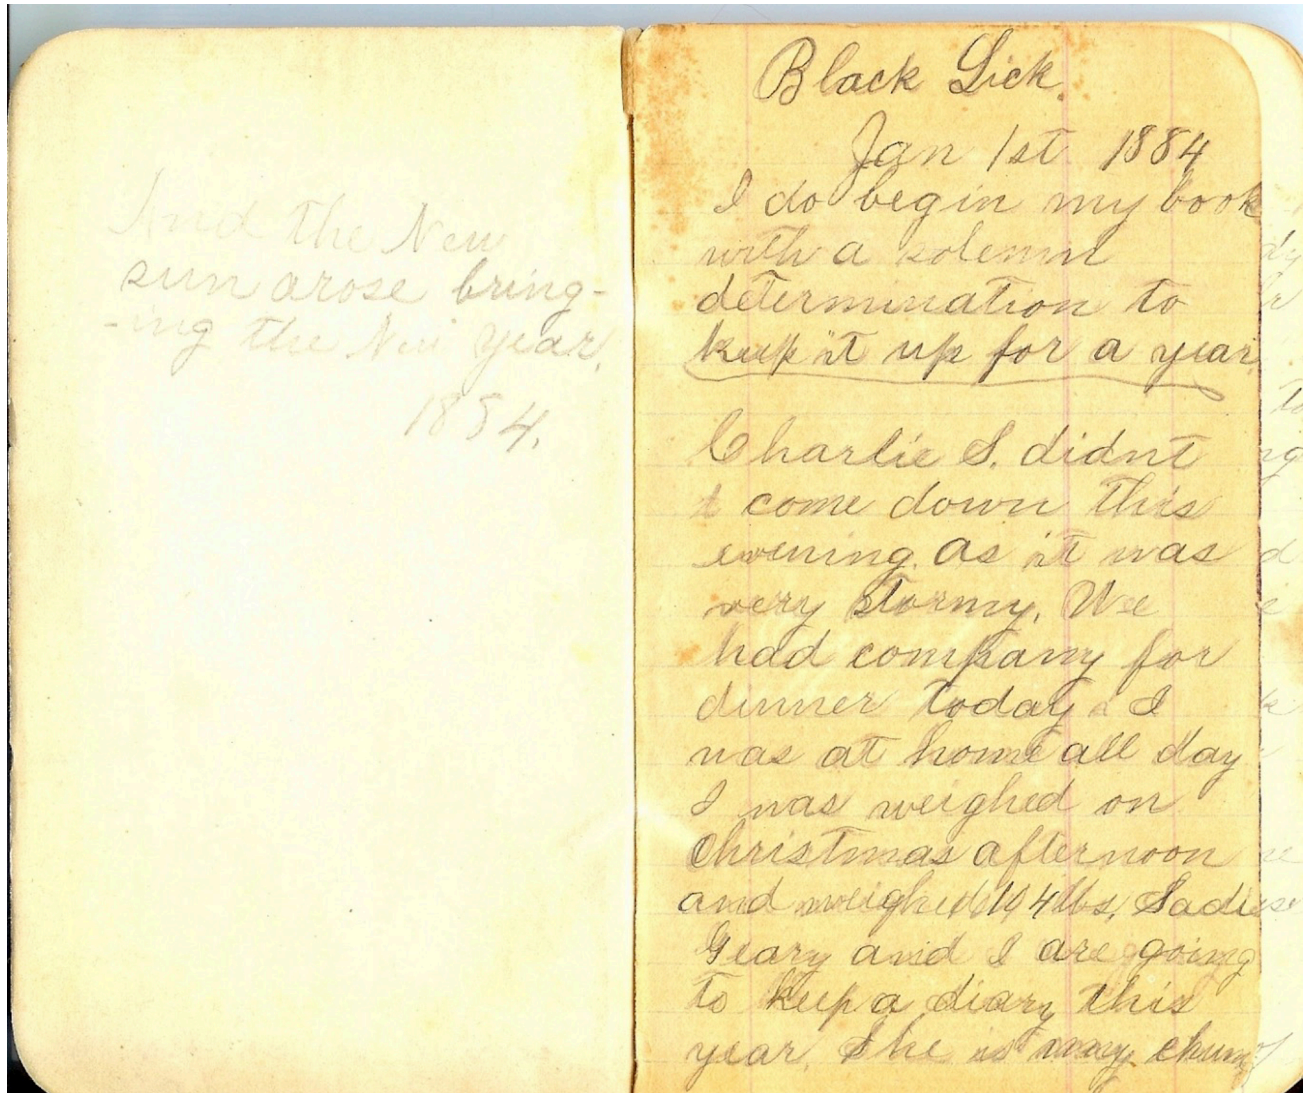 And the New
sun arose bring-
-ing the New year.
1884.
Black Lick.
Jan 1st 1884
I do begin my book
with a solemn
determination to
keep it up for a year.
Charlie S. didnt
come down this
evening. as it was
very stormy. We
had company for
dinner today. I
was at home all day
I was weighed on
Christmas afternoon
and weighed lbs. Sadie
Geary and I are going
to keep a diary this
year. She is my chum